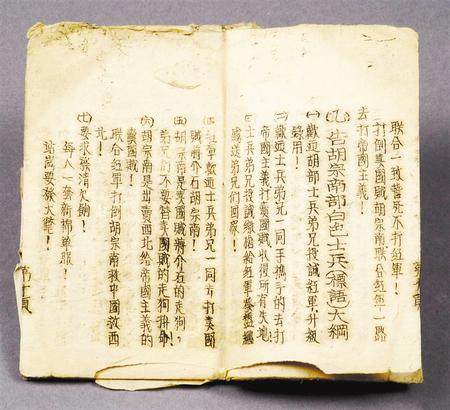 聯合一致誓死不打紅軍！
打倒賣國賊胡宗南聯合紅軍一路
去打帝國主義！
(九)告胡宗南部白色士兵(標語)大綱
(一)歡迎胡部士兵弟兄投誠紅軍，升級
錄用！
(二)歡迎士兵弟兄一同手携手的去打
帝國主義打賣國賊收復所有失地！
(三)士兵弟兄投誠繳槍給紅軍發給盤纏
歡送弟兄們回家！
(四)紅軍歡迎士兵弟兄一同去打賣國
賊蔣介石胡宗南！
(五)胡宗南是賣國賊蔣介石的走狗，
弟兄們不要替賣國賊的走狗拚命！
(六)胡宗南是出賣西北給帝國主義的
賣國賊！
聯合紅軍打倒胡宗南救中國救西
北！
(七)要求發清欠餉！
每人一套新棉單服！
站崗要發大氅！
第十頁